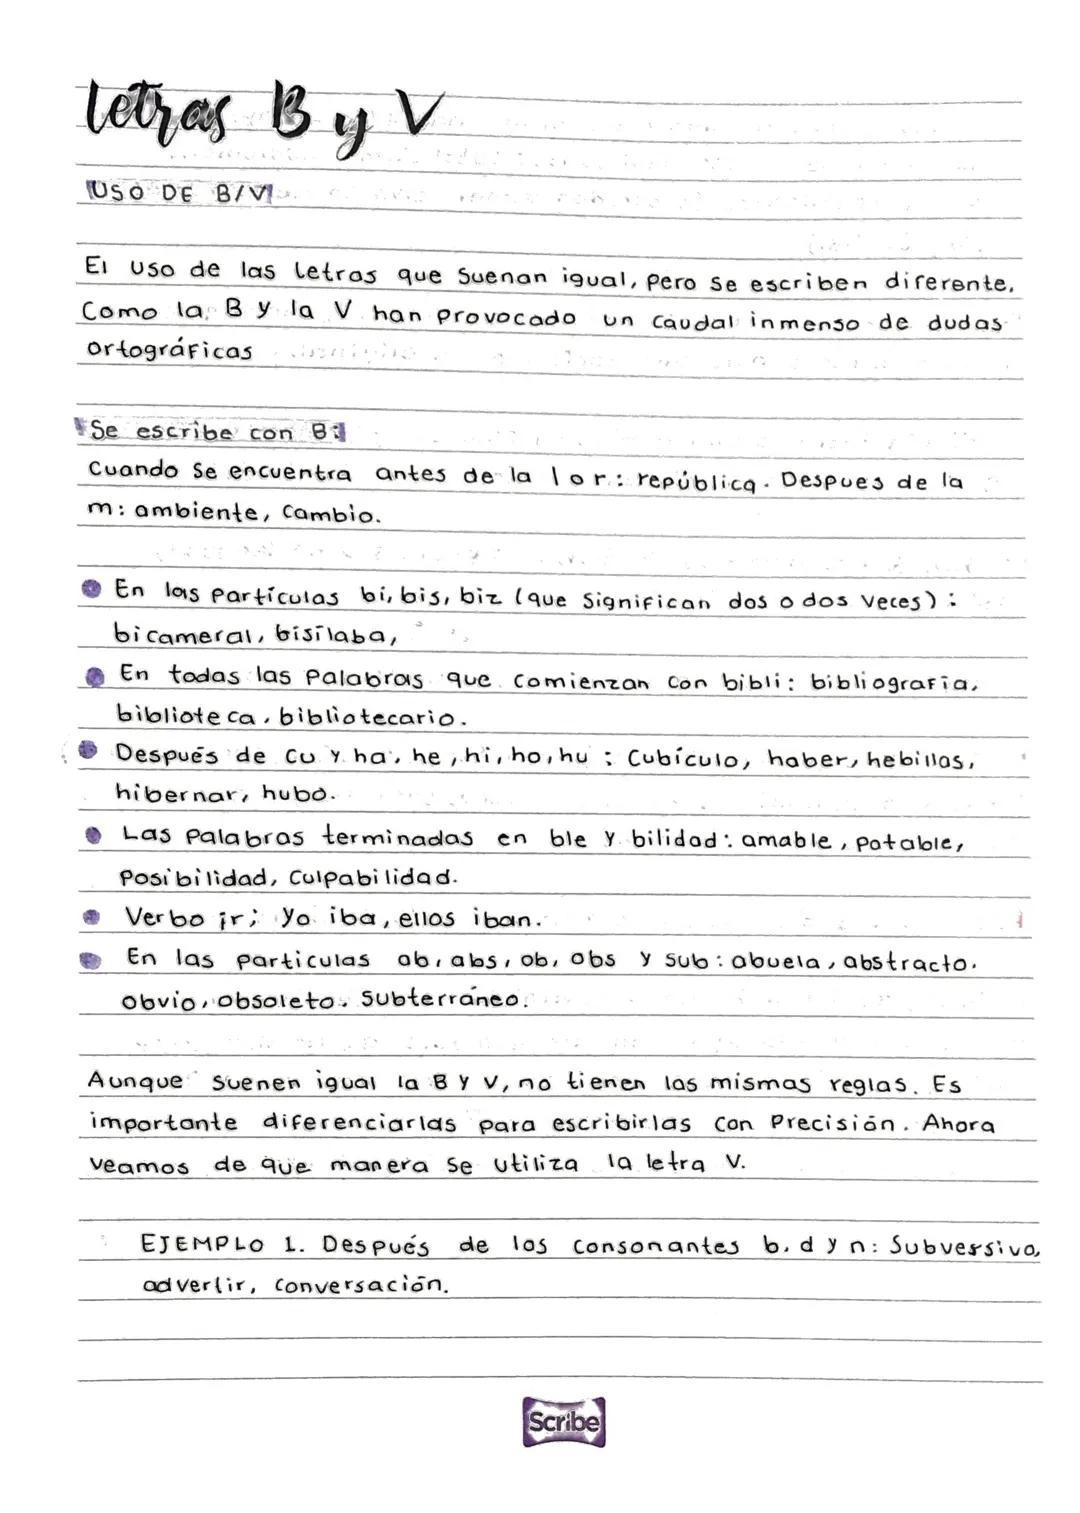 Letras B y V
USO DE B/V
El uso de las letras que suenan igual, pero se escriben diferente.
Como la B y la V han provocado un caudal inmenso de dudas
ortográficas
Se escribe con B:
Cuando se encuentra antes de la l o r: república. Despues de la
m: ambiente, cambio.
En las partículas bi, bis, biz (que significan dos o dos veces):
bicameral, bisílaba,
En todas las palabras que comienzan con bibli: bibliografía,
biblioteca, bibliotecario.
Después de cu y ha, he, hi, ho, hu: Cubículo, haber, hebillas,
hibernar, hubo.
Las palabras terminadas en ble y bilidad: amable, potable,
posibilidad, culpabilidad.
Verbo ir; yo iba, ellos iban.
En las particulas ab, abs, ob, obs y sub: abuela, abstracto.
obvio, obsoleto. Subterráneo.
Aunque suenen igual la B y V, no tienen las mismas reglas. Es
importante diferenciarlas para escribirlas con precisión. Ahora
veamos de que manera se utiliza la letra V.
EJEMPLO 1. Después de las consonantes b, d y n: Subversivo,
advertir, conversación.
Scribe